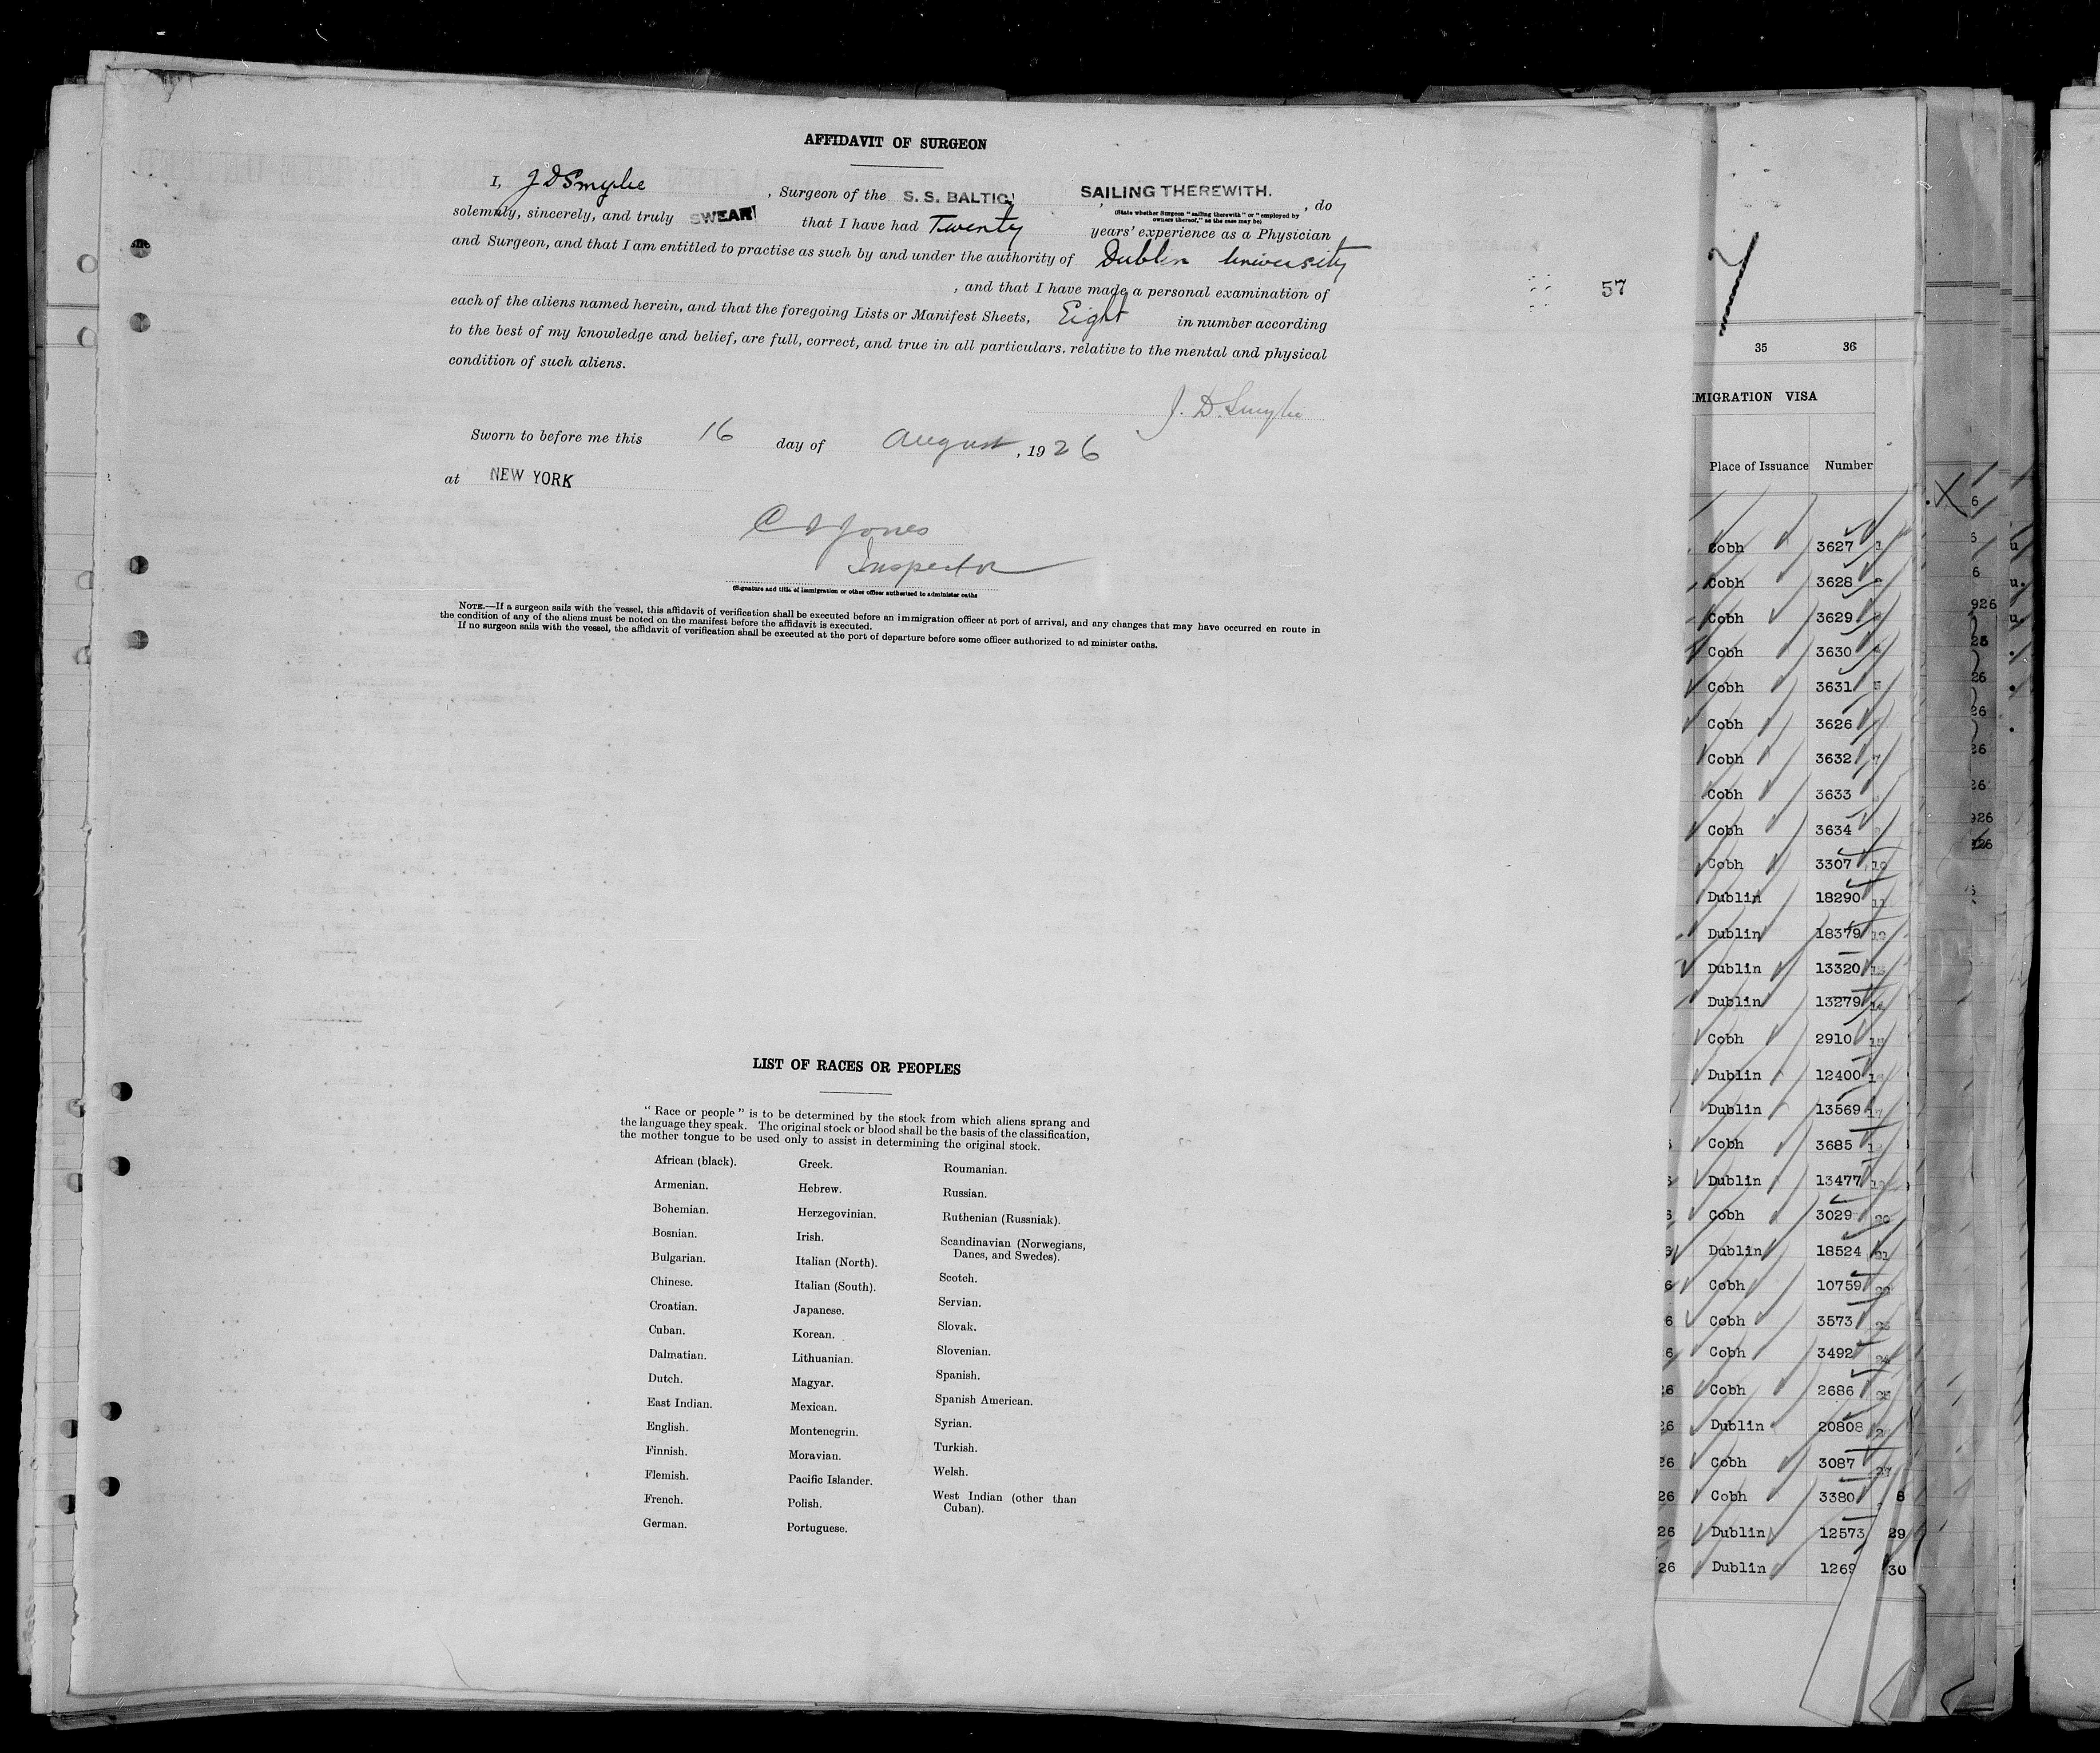 AFFIDAVIT OF SURGEON
I, J D Smylie , Surgeon of the S. S. BALTIC, SAILING THEREWITH. , do
(State whether Surgeon "sailing therewith" or "employed by owners thereof," as the case may be)
solemnly, sincerely, and truly SWEAR that I have had Twenty years' experience as a Physician
and Surgeon, and that I am entitled to practise as such by and under the authority of Dublin University
, and that I have made a personal examination of
each of the aliens named herein, and that the foregoing Lists or Manifest Sheets, Eight in number according
to the best of my knowledge and belief, are full, correct, and true in all particulars. relative to the mental and physical
condition of such aliens.
J. D. Smylie
Sworn to before me this 16 day of August , 1926
at NEW YORK
Jones
Inspector
(Signature and title of immigration or other officer authorized to administer oaths
NOTE.—If a surgeon sails with the vessel, this affidavit of verification shall be executed before an immigration officer at port of arrival, and any changes that may have occurred en route in
the condition of any of the aliens must be noted on the manifest before the affidavit is executed.
If no surgeon sails with the vessel, the affidavit of verification shall be executed at the port of departure before some officer authorized to administer oaths.
57
LIST OF RACES OR PEOPLES
"Race or people" is to be determined by the stock from which aliens sprang and
the language they speak. The original stock or blood shall be the basis of the classification,
the mother tongue to be used only to assist in determining the original stock.
African (black).
Armenian.
Bohemian.
Bosnian.
Bulgarian.
Chinese.
Croatian.
Cuban.
Dalmatian.
Dutch.
East Indian.
English.
Finnish.
Flemish.
French.
German.
Greek.
Hebrew.
Herzegovinian.
Irish.
Italian (North).
Italian (South).
Japanese.
Korean.
Lithuanian.
Magyar.
Mexican.
Montenegrin.
Moravian.
Pacific Islander.
Polish.
Portuguese.
Roumanian.
Russian.
Ruthenian (Russniak).
Scandinavian (Norwegians,
Danes, and Swedes).
Scotch.
Servian.
Slovak.
Slovenian.
Spanish.
Spanish American.
Syrian.
Turkish.
Welsh.
West Indian (other than
Cuban).
35 36
MIGRATION VISA
Place of Issuance Number
Cobh 3627 1
Cobh 3628
Cobh 3629
Cobh 3630
Cobh 3631 5
Cobh 3626
Cobh 3632 7
Cobh 3633
Cobh 3634
Cobh 3307 10
Dublin 18290 11
Dublin 18379 12
Dublin 13320
Dublin 13279 14
Cobh 2910
Dublin 12400
Dublin 13569 17
Cobh 3685
Dublin 13477 19
Cobh 3029 20
Dublin 18524 21
Cobh 10759
Cobh 3573
Cobh 3492 24
Cobh 2686 25
Dublin 20808
Cobh 3087 27
Cobh 3380 8
Dublin 12573 29
Dublin 1269 30